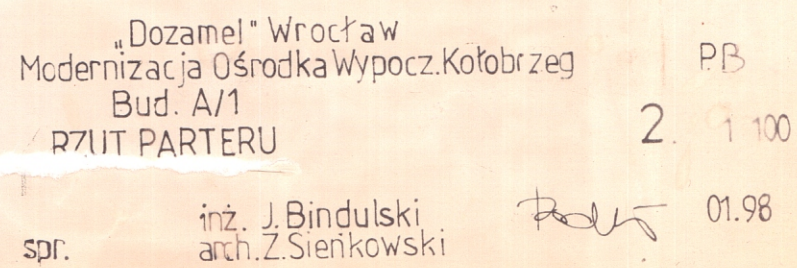 „Dozamel" Wrocław
Modernizacja Ośrodka Wypocz. Kołobrzeg PB
Bud. A/1
RZUT PARTERU 2. 1 100
inż. J. Bindulski 01.98
spr. arch. Z. Sieńkowski